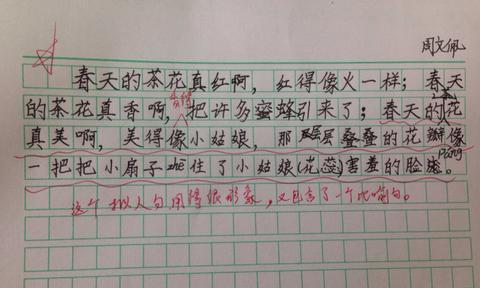 周文佩
春天的茶花真红啊，红得像火一样；春天
香得
的茶花真香啊，把许多蜜蜂引来了；春天的花
真美啊，美得像小姑娘，那层层叠叠的花瓣像
páng
一把把小扇子zhē住了小姑娘(花蕊)害羞的脸庞。
这个拟人句用得很形象，又包含了一个比喻句。